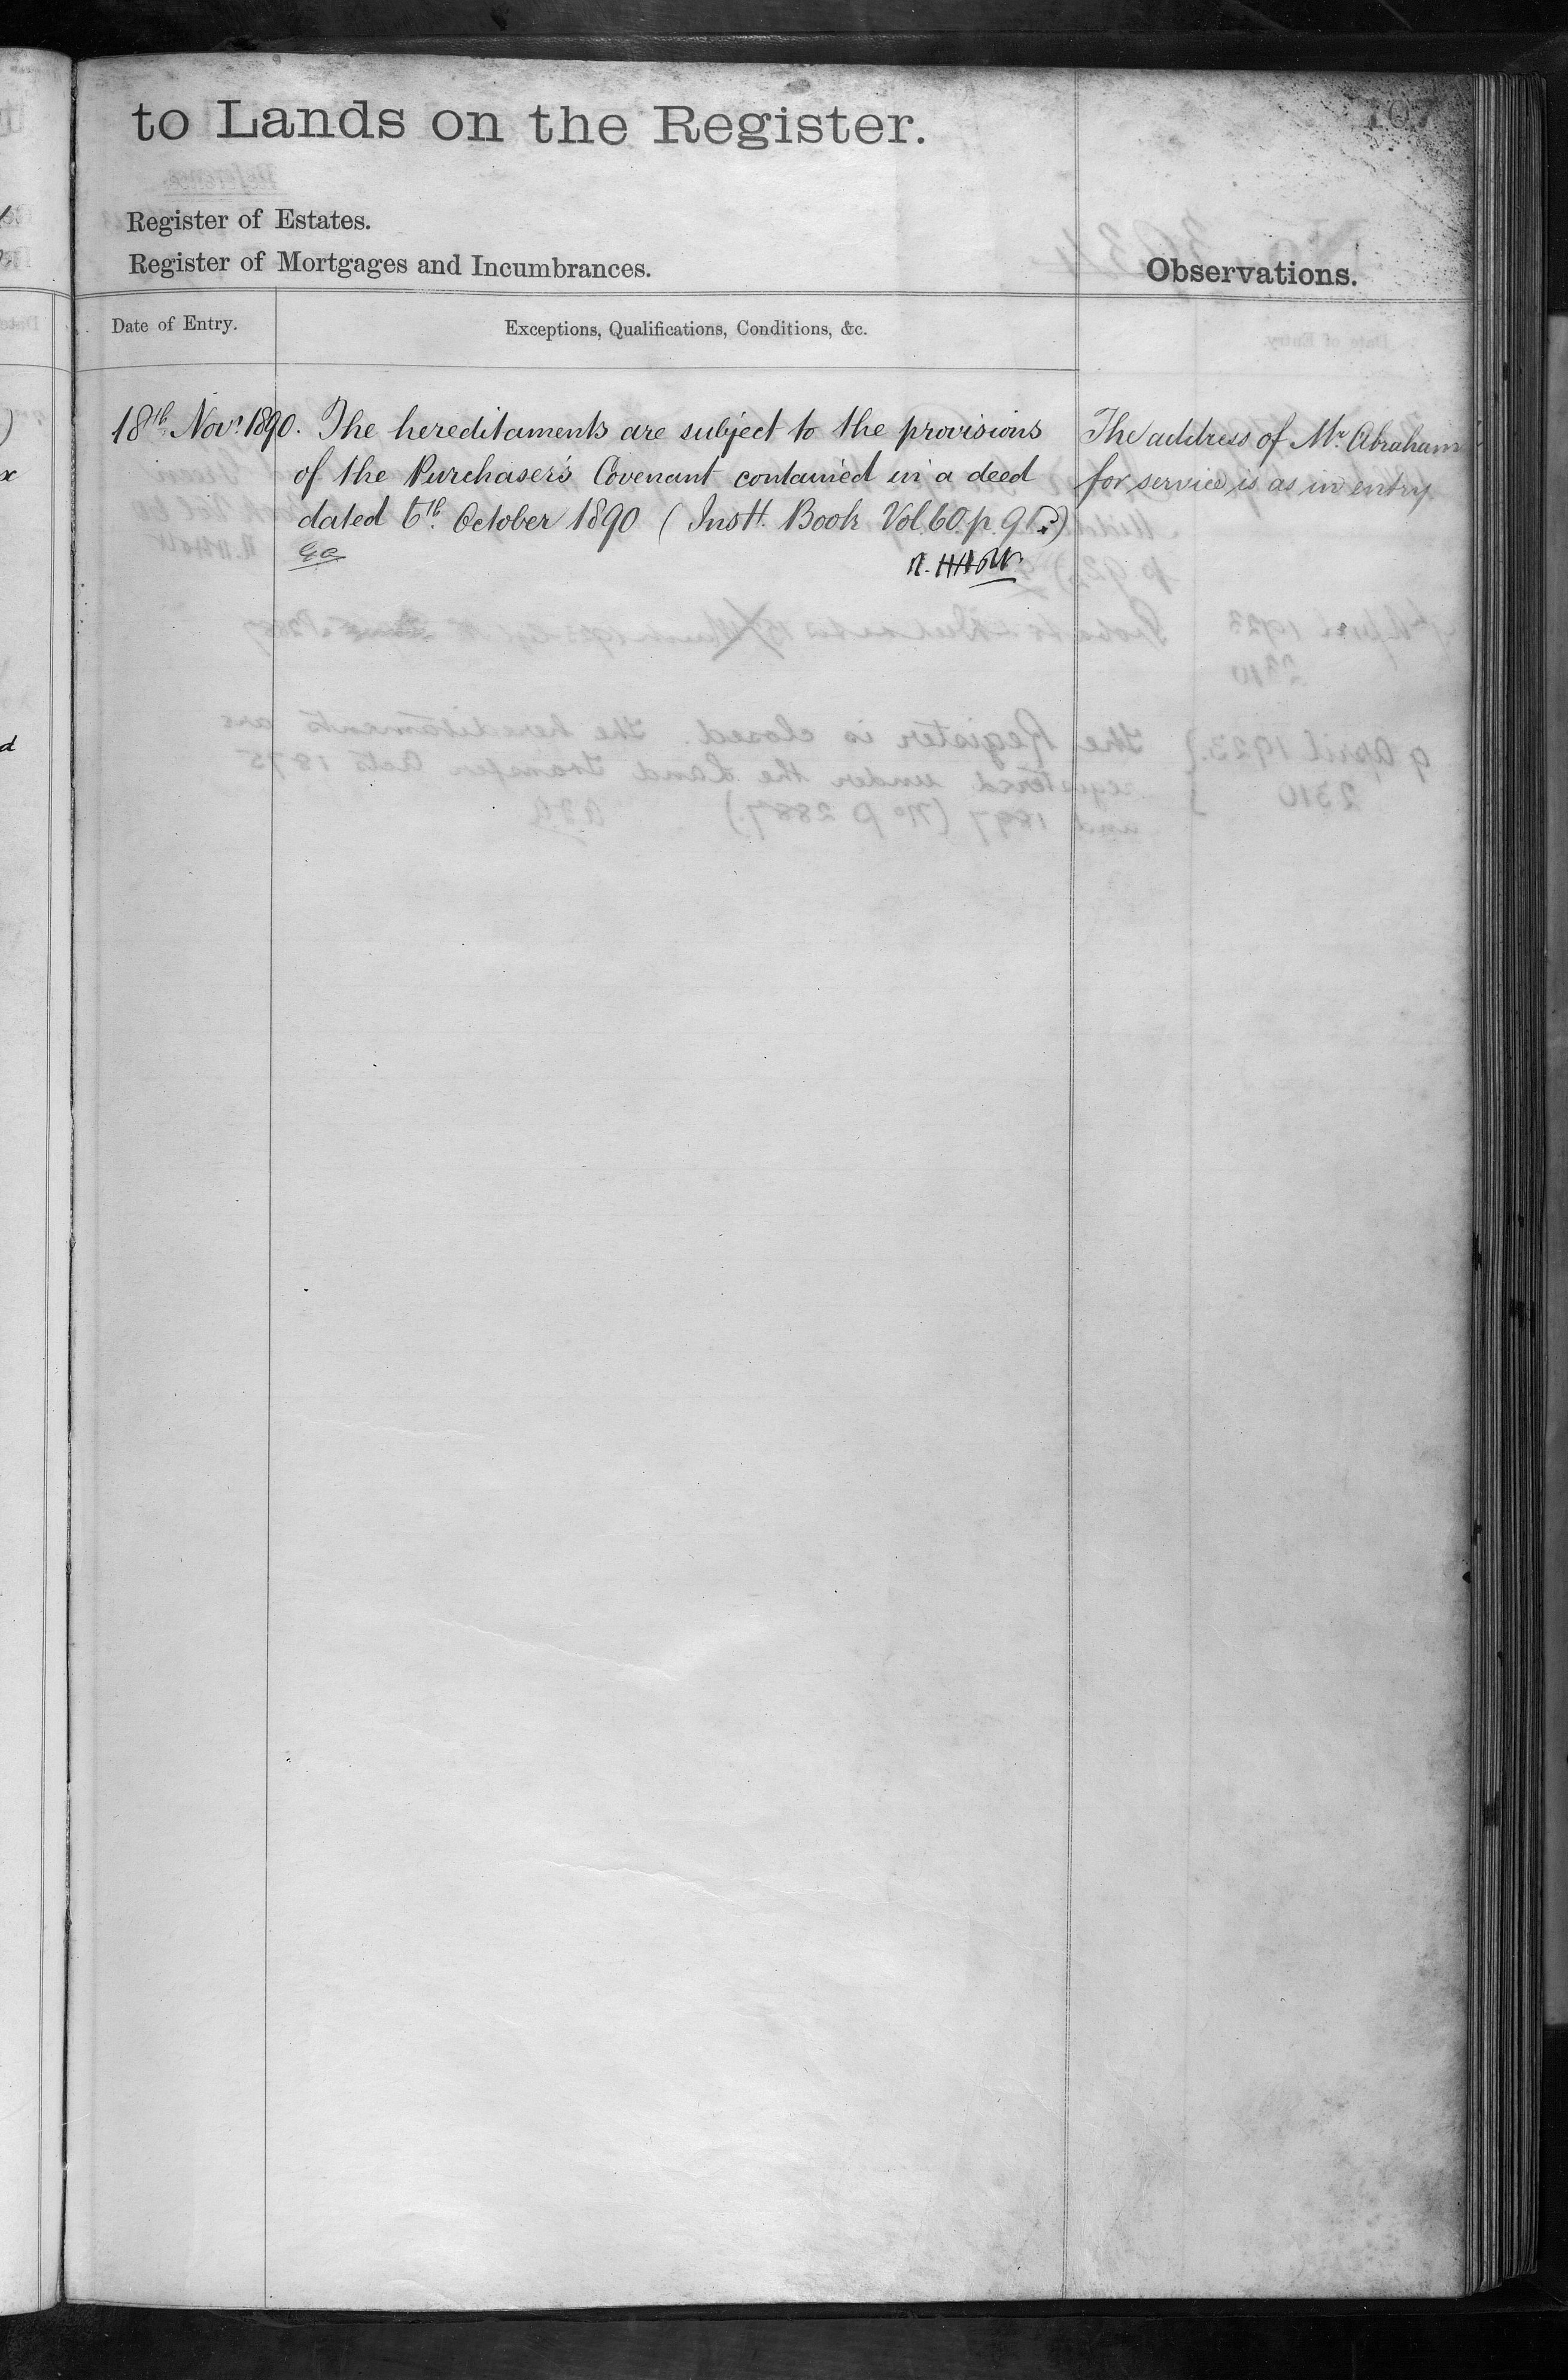 to Lands on the Register.
107
Register of Estates.
Register of Mortgages and Incumbrances.
Observations.
Date of Entry.
Exceptions, Qualifications, Conditions, &c.
18th Novr. 1890. The hereditaments are subject to the provisions
of the Purchaser's Covenant contained in a deed
dated 6th October 1890 (Inst. Book Vol. 60. p. 91
The address of Mr. Abraham
for service is as in entry